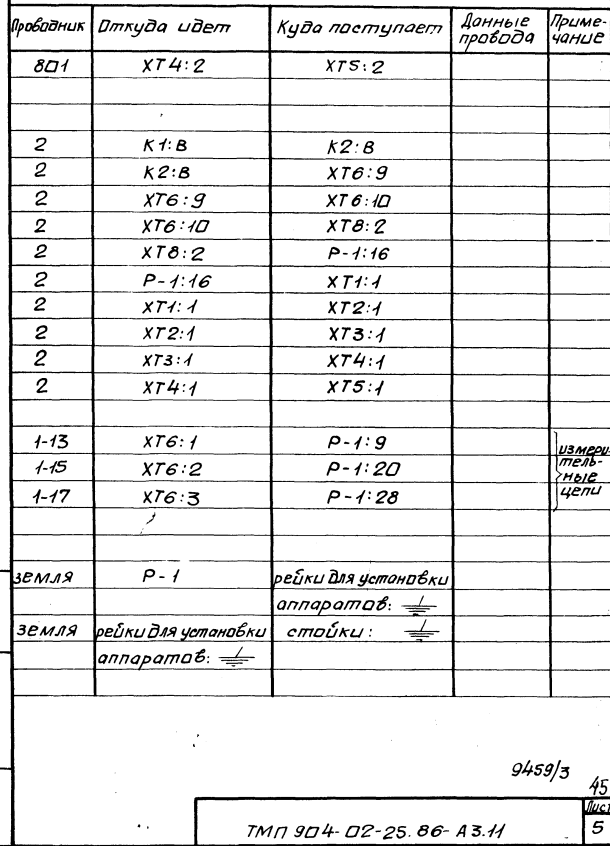 Проводник Откуда идет Куда поступает Данные провода Приме-чание
801 XT4:2 XT5:2
2 K1:B K2:B
2 K2:B XT6:9
2 XT6:9 XT6:10
2 XT6:10 XT8:2
2 XT8:2 P-1:16
2 P-1:16 XT1:1
2 XT1:1 XT2:1
2 XT2:1 XT3:1
2 XT3:1 XT4:1
2 XT4:1 XT5:1
1-13 XT6:1 P-1:9 измери-
1-15 XT6:2 P-1:20 тель-ные
1-17 XT6:3 P-1:28 цепи
земля P-1 рейки для установки
аппаратов:
земля рейки для установки стойки:
аппаратов:
9459/3
45
Лист
ТМП 904-02-25.86-А3.11 5